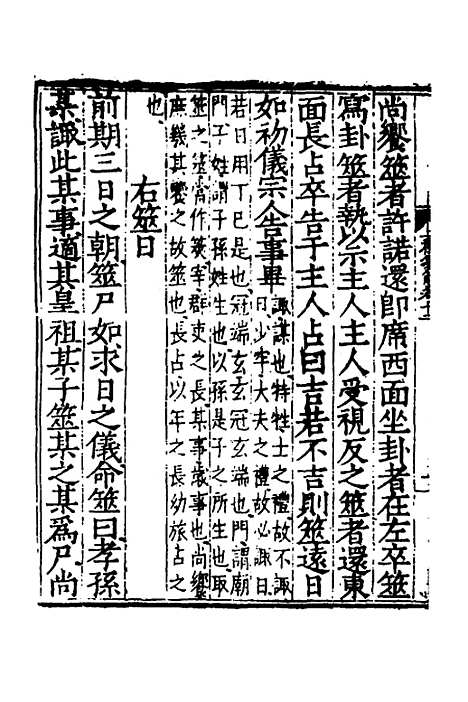 尚饗筮者許諾還即席西面坐卦者在左卒筮
寫卦筮者執以示主人主人受視反之筮者還東
面長占卒告于主人占曰吉若不吉則筮遠日
如初儀宗人告事畢
諏謀也特牲士之禮故不諏
日少牢大夫之禮故必諏日
若日用丁己是也冠端玄玄冠玄端也門謂廟
門子姓謂子孫姓生也以孫是子之所生也取
筮之筮當作筴宰群吏之長某事歲事也尚饗
庶幾其饗之故筮也長占以年之長幼旅占之
也
右筮日
前期三日之朝筮尸如求日之儀命筮曰孝孫
某諏此某事適其皇祖某子筮某之某為尸尚